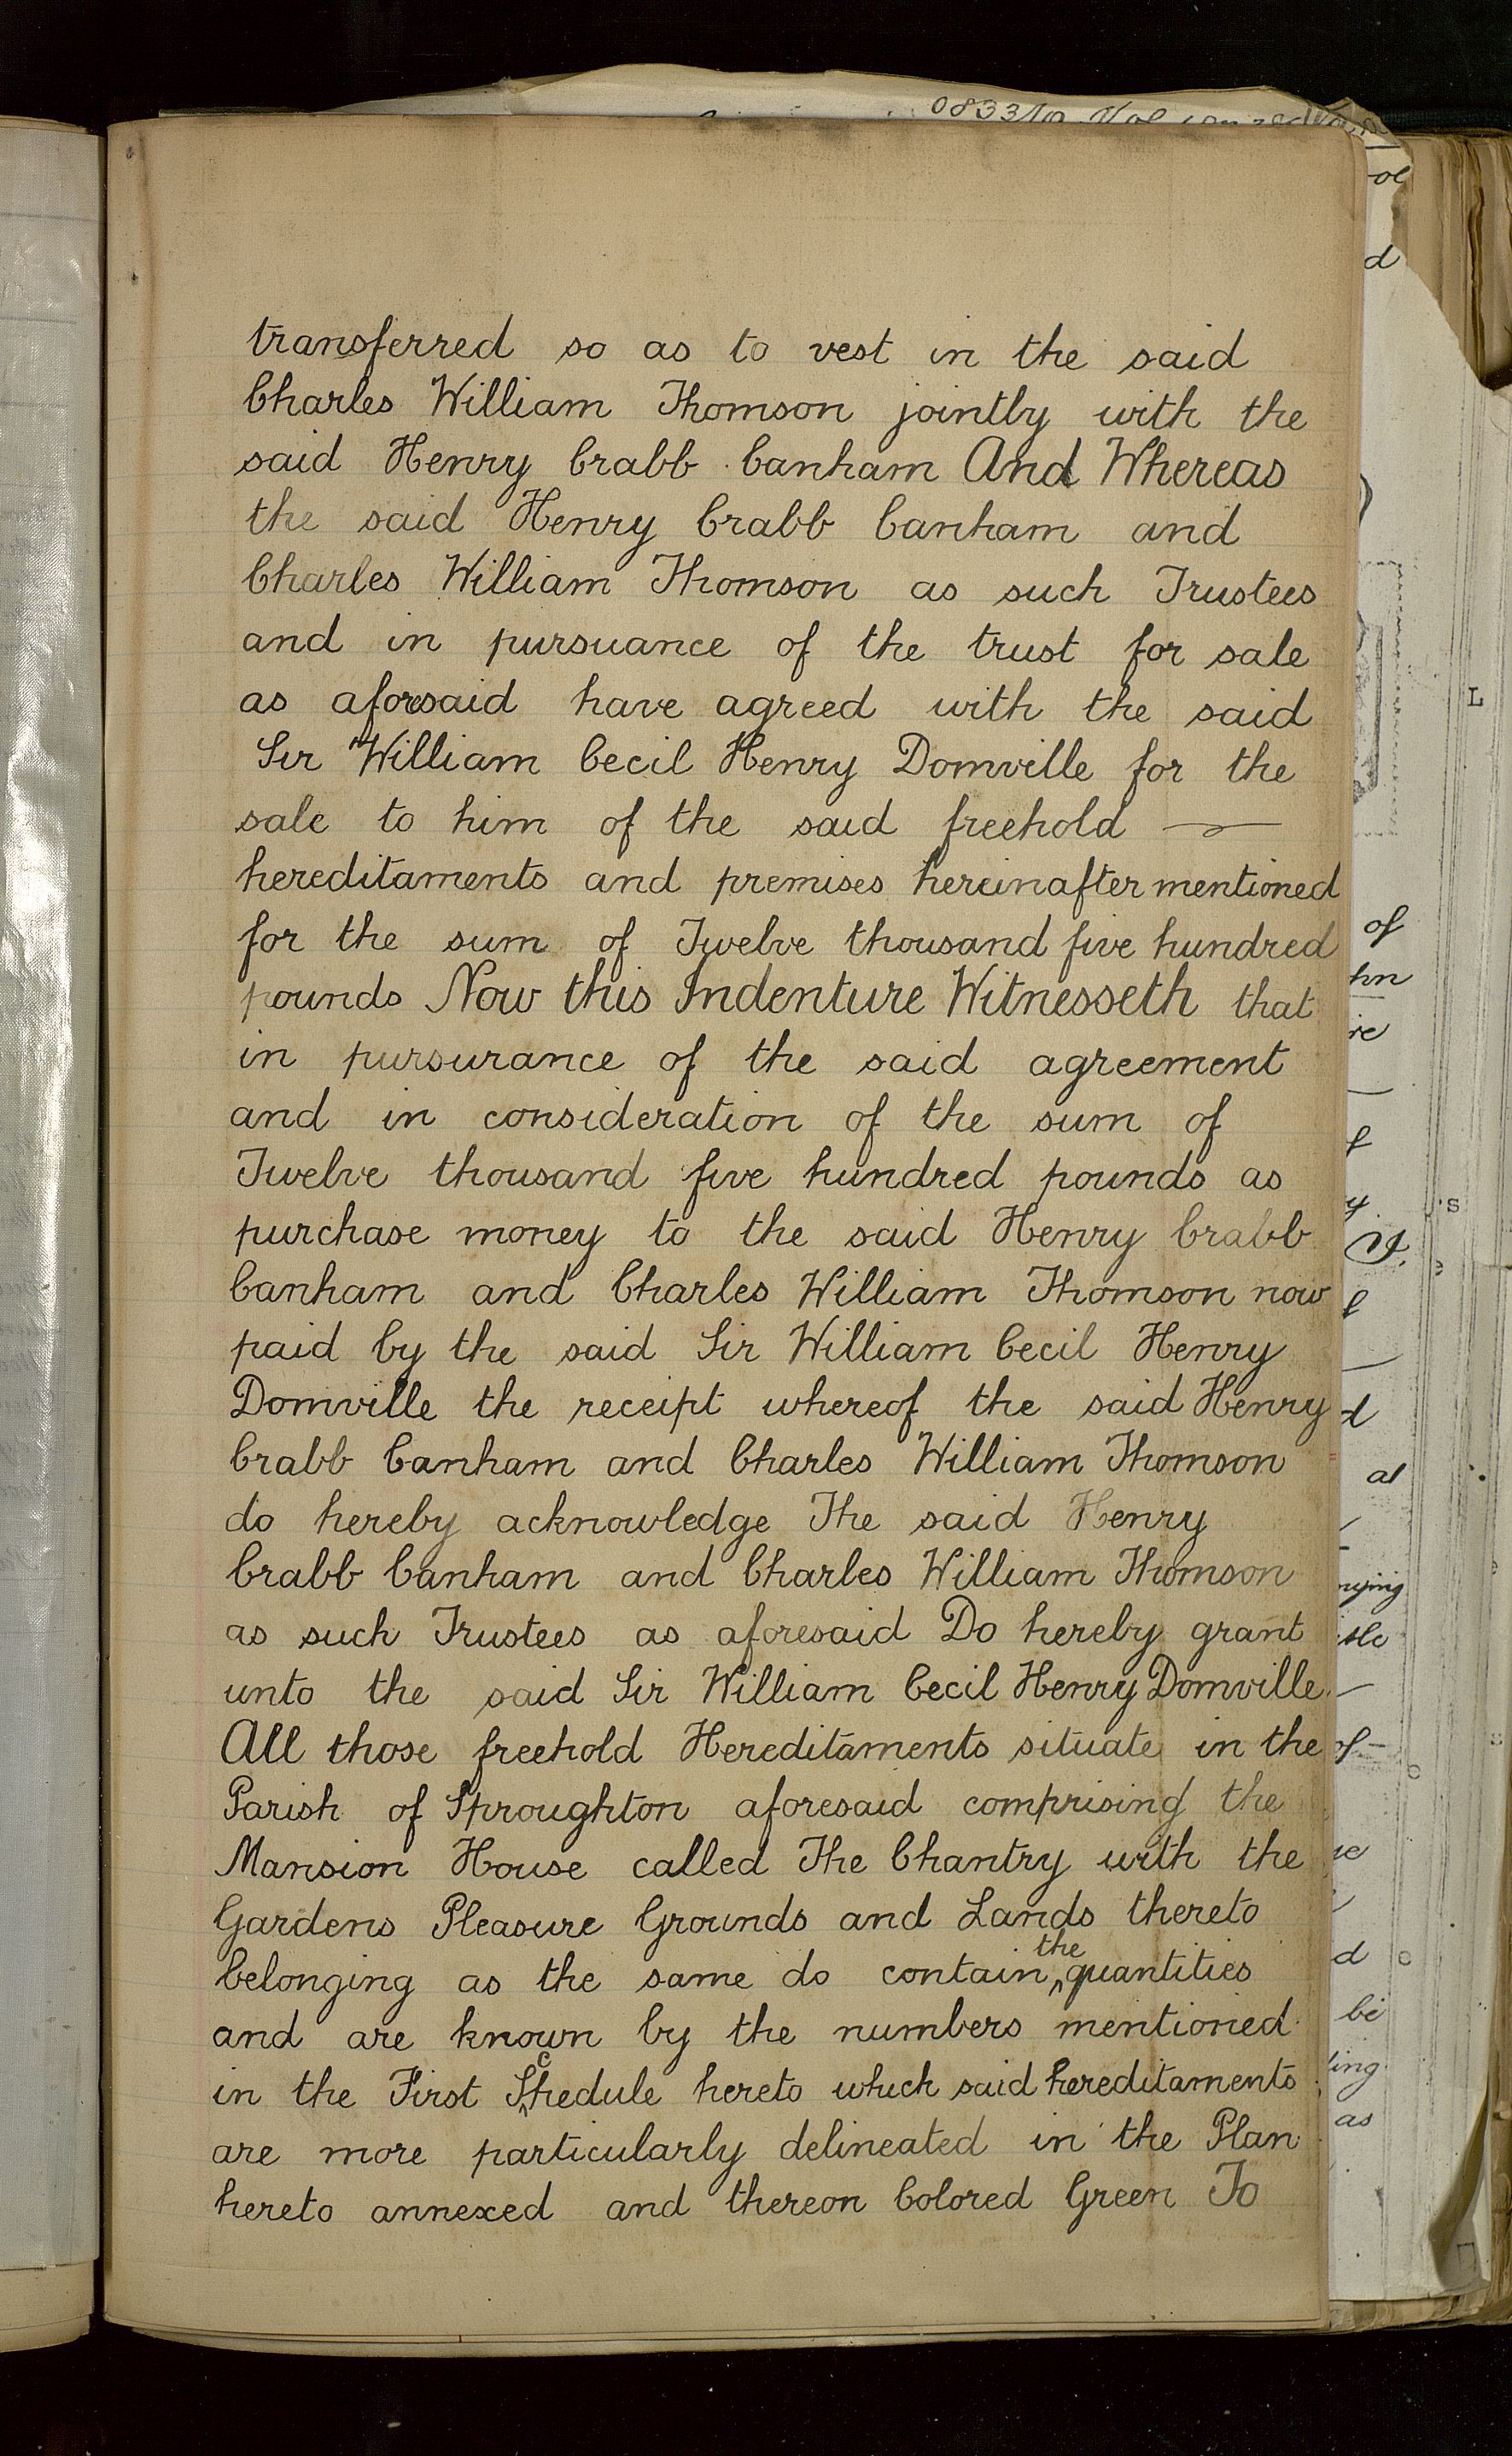 transferred so as to vest in the said
Charles William Thomson jointly with the
said Henry Crabb Canham And Whereas
the said Henry Crabb Canham and
Charles William Thomson as such Trustees
and in pursuance of the trust for sale
as aforesaid have agreed with the said
Sir William Cecil Henry Domville for the
sale to him of the said freehold
hereditaments and premises hereinafter mentioned
for the sum of Twelve thousand five hundred
pounds Now this Indenture Witnesseth that
in pursurance of the said agreement
and in consideration of the sum of
Twelve thousand five hundred pounds as
purchase money to the said Henry Crabb
Canham and Charles William Thomson now
paid by the said Sir William Cecil Henry
Domville the receipt whereof the said Henry
Crabb Canham and Charles William Thomson
do hereby acknowledge The said Henry
Crabb Canham and Charles William Thomson
as such Trustees as aforesaid Do hereby grant
unto the said Sir William Cecil Henry Domville
All those freehold Hereditaments situate in the
Parish of Sproughton aforesaid comprising the
Mansion House called The Chantry with the
Gardens Pleasure Grounds and Lands thereto
belonging as the same do contain the quantities
and are known by the numbers mentioned
in the First Schedule hereto which said hereditaments
are more particularly delineated in the Plan
hereto annexed and thereon Colored Green To